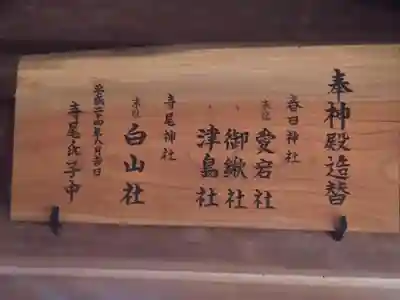 奉神殿造替
春日神社
末社 愛宕社
御鍬社
津島社
寺尾神社
末社 白山社
平成二十四年八月吉日
寺尾氏子中